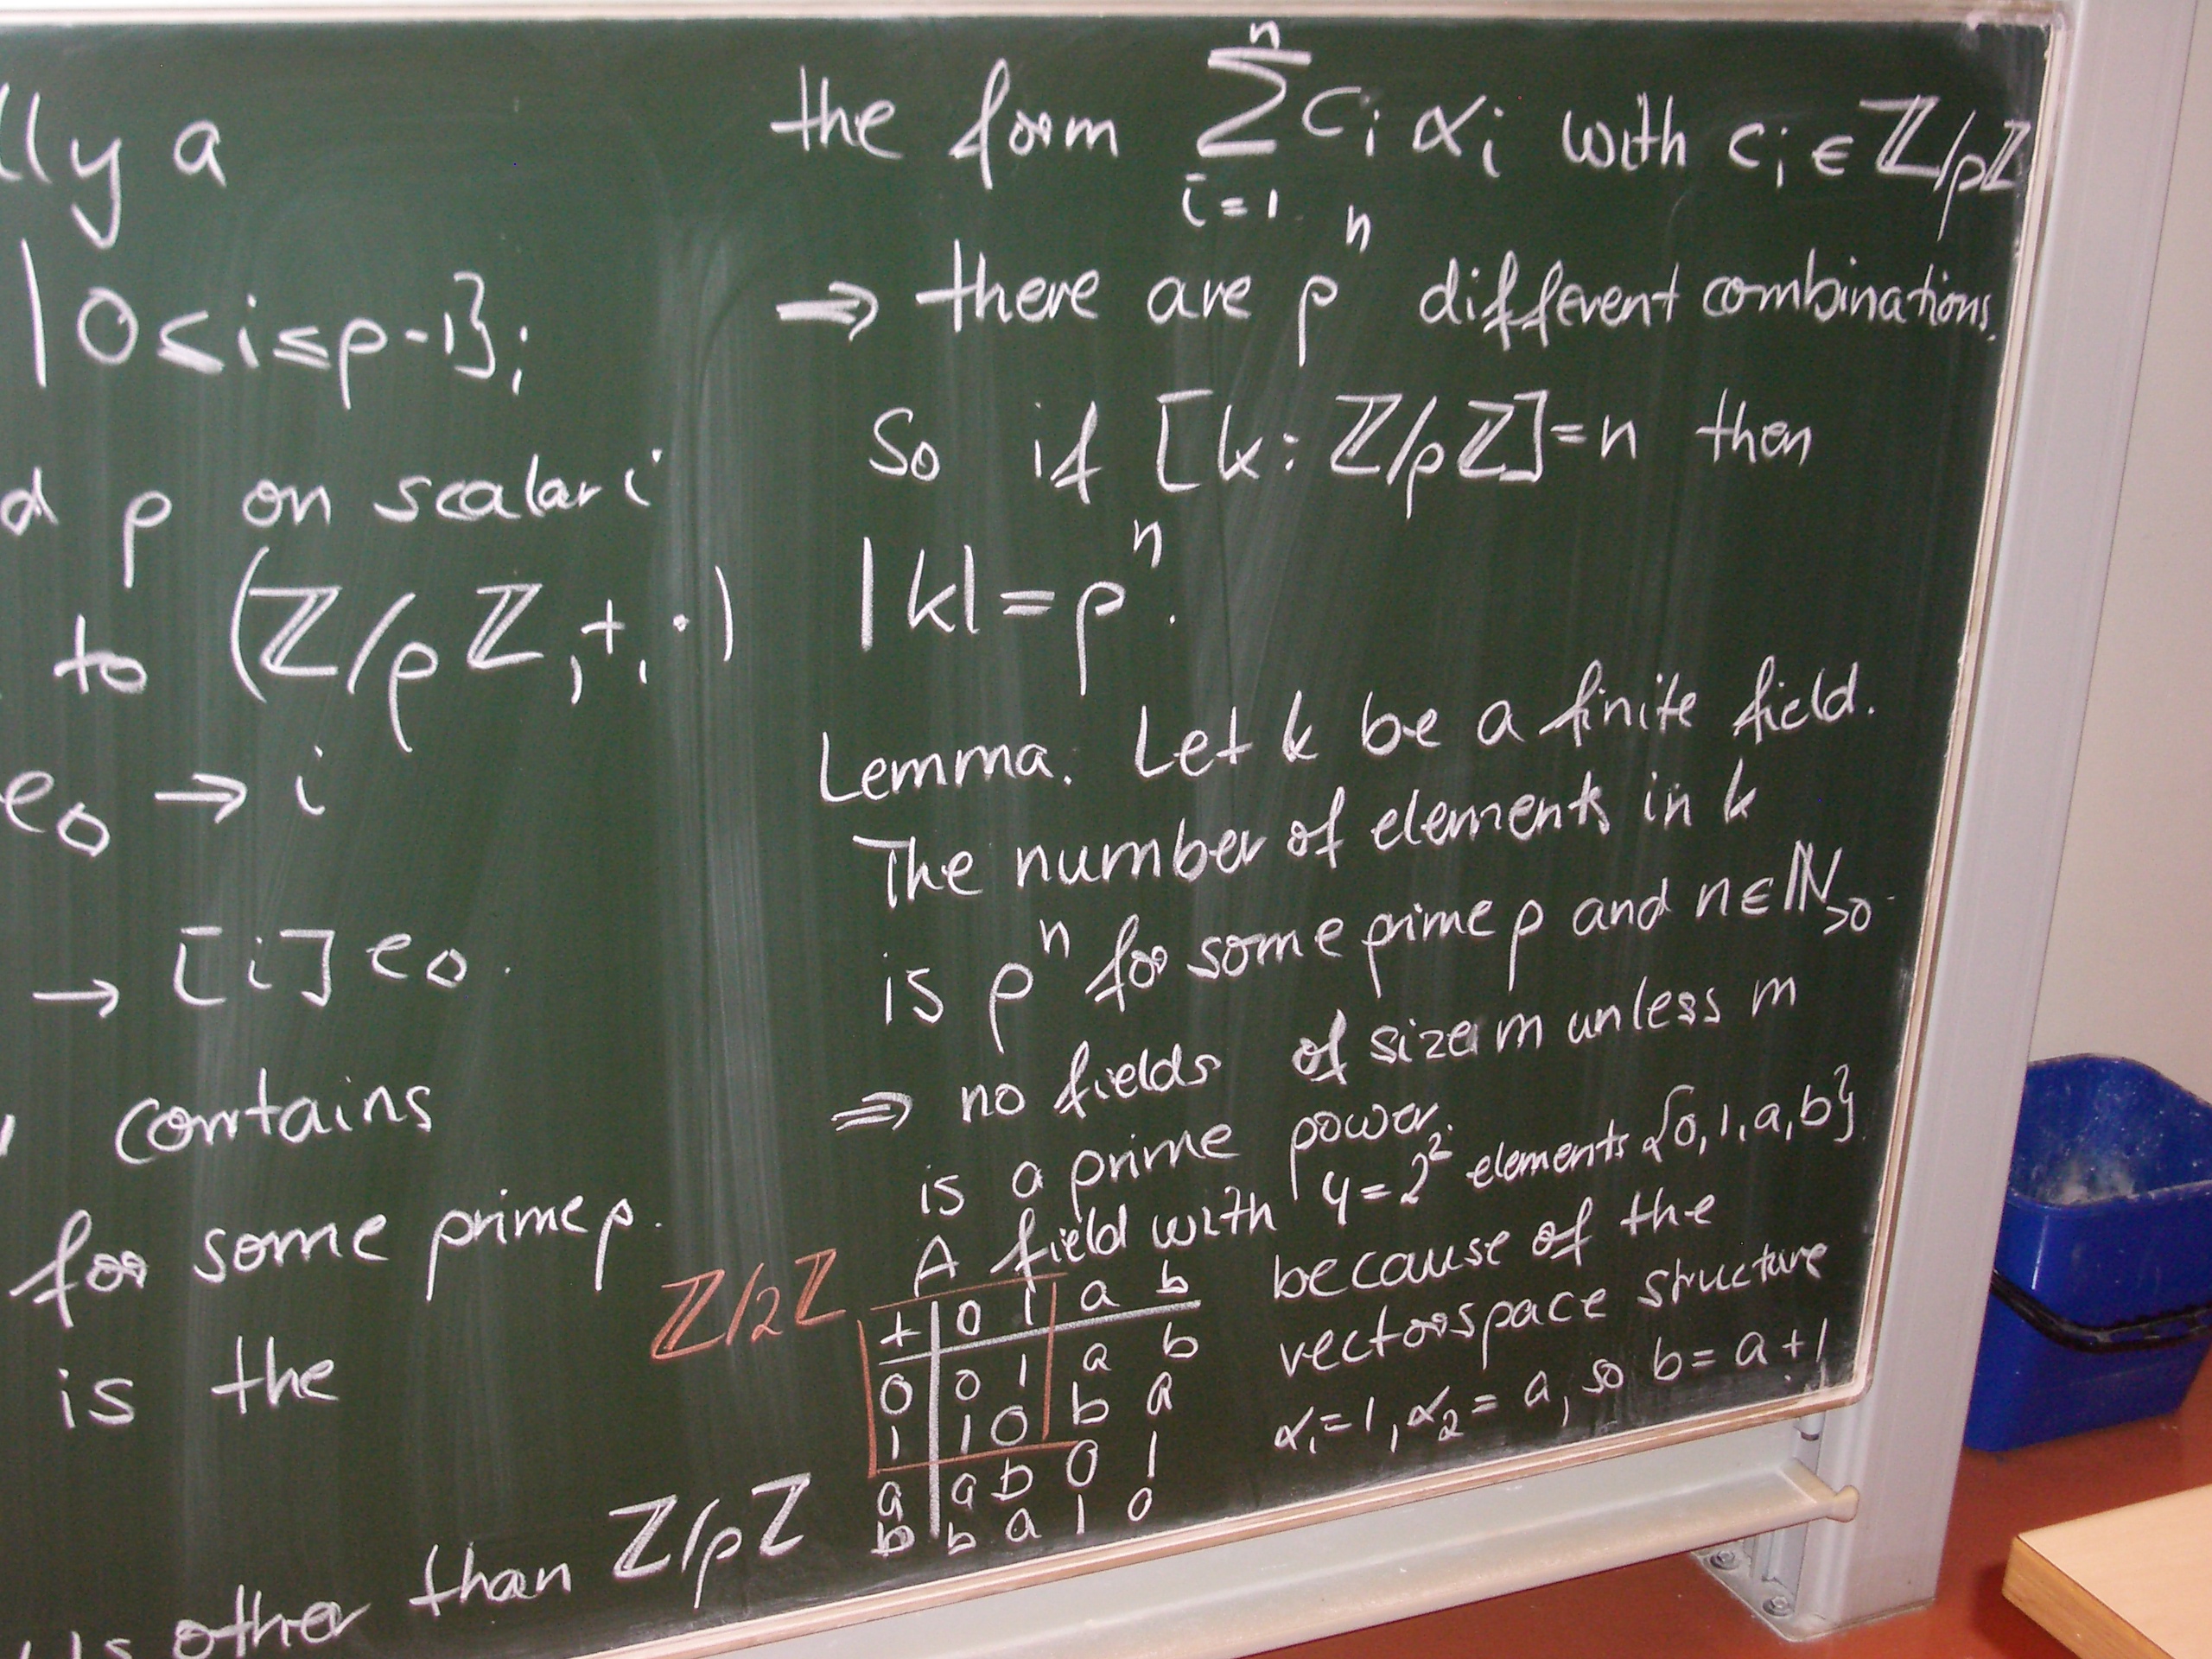 lly a
| 0 ≤ i ≤ p-1};
d p on scalar i
to (ℤ/pℤ, +, ·)
e₀ → i
→ [i] e₀.
contains
for some prime p.
is the
other than ℤ/pℤ
the form ∑_{i=1}^{n} cᵢ αᵢ with cᵢ ∈ ℤ/pℤ
⇒ there are pⁿ different combinations.
So if [k : ℤ/pℤ] = n then
|k| = pⁿ.
Lemma. Let k be a finite field.
The number of elements in k
is pⁿ for some prime p and n ∈ ℕ_{>0}.
⇒ no fields of size m unless m
is a prime power.
A field with 4 = 2² elements {0, 1, a, b}
ℤ/2ℤ
+ | 0 1 a b
0 | 0 1 a b
1 | 1 0 b a
a | a b 0 1
b | b a 1 0
because of the
vectorspace structure
α₁ = 1, α₂ = a, so b = a + 1